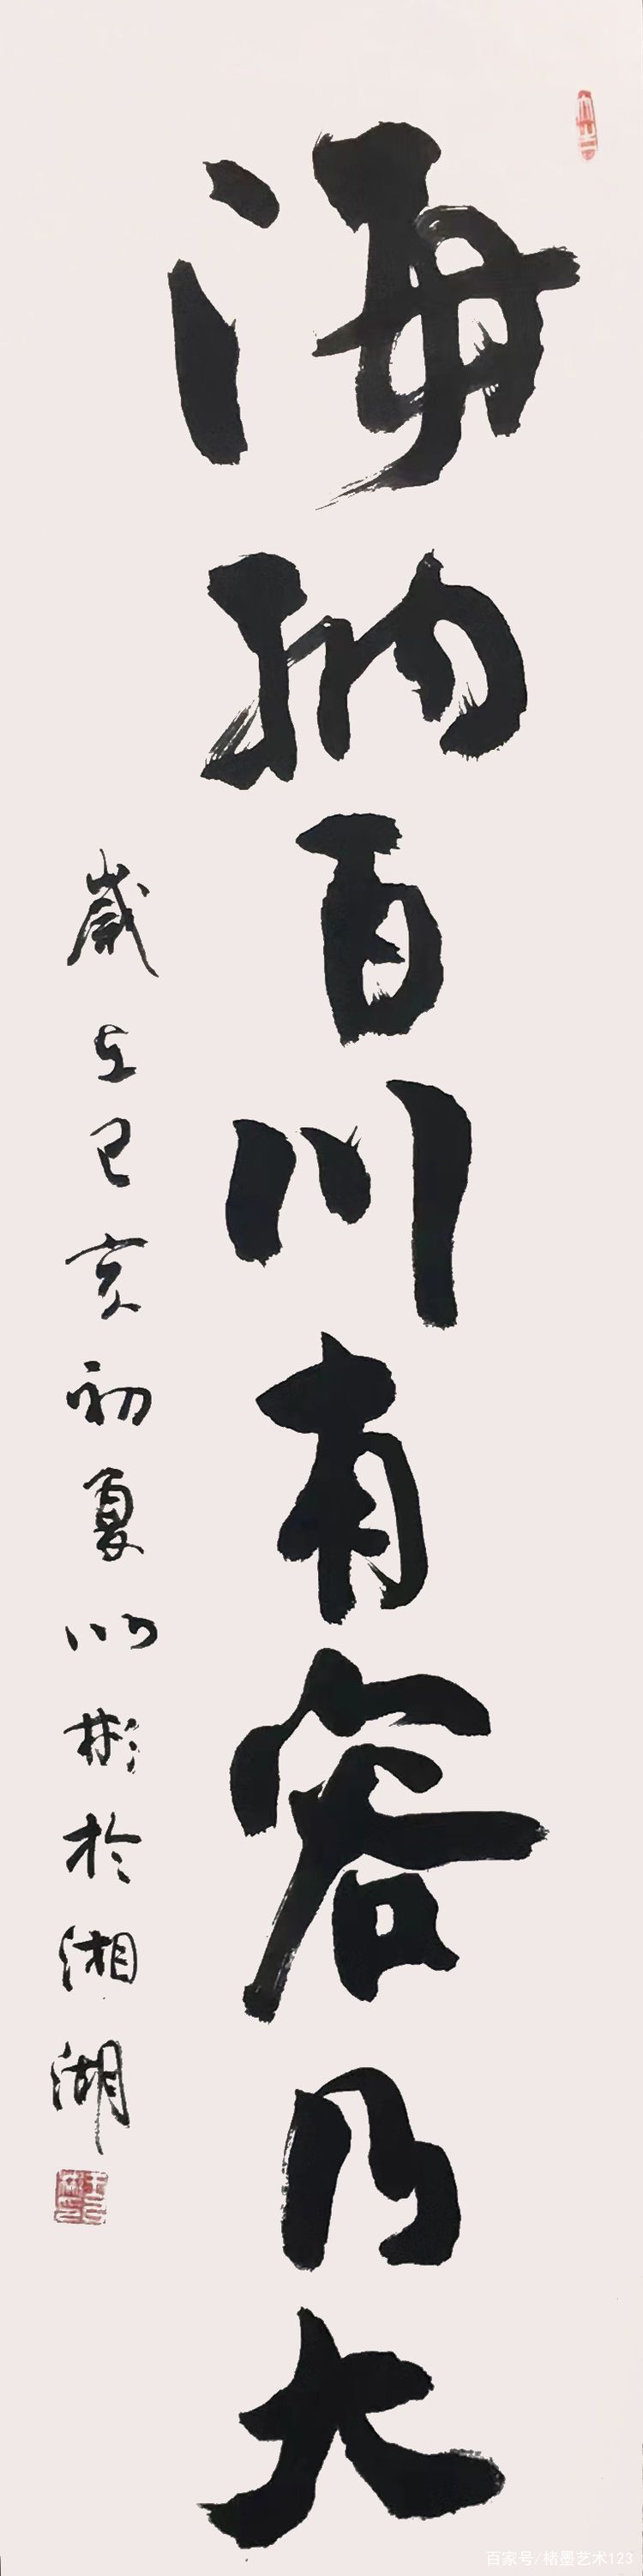 海纳百川有容乃大
岁在己亥初夏以彬於湘湖
百家号/楮墨艺术123